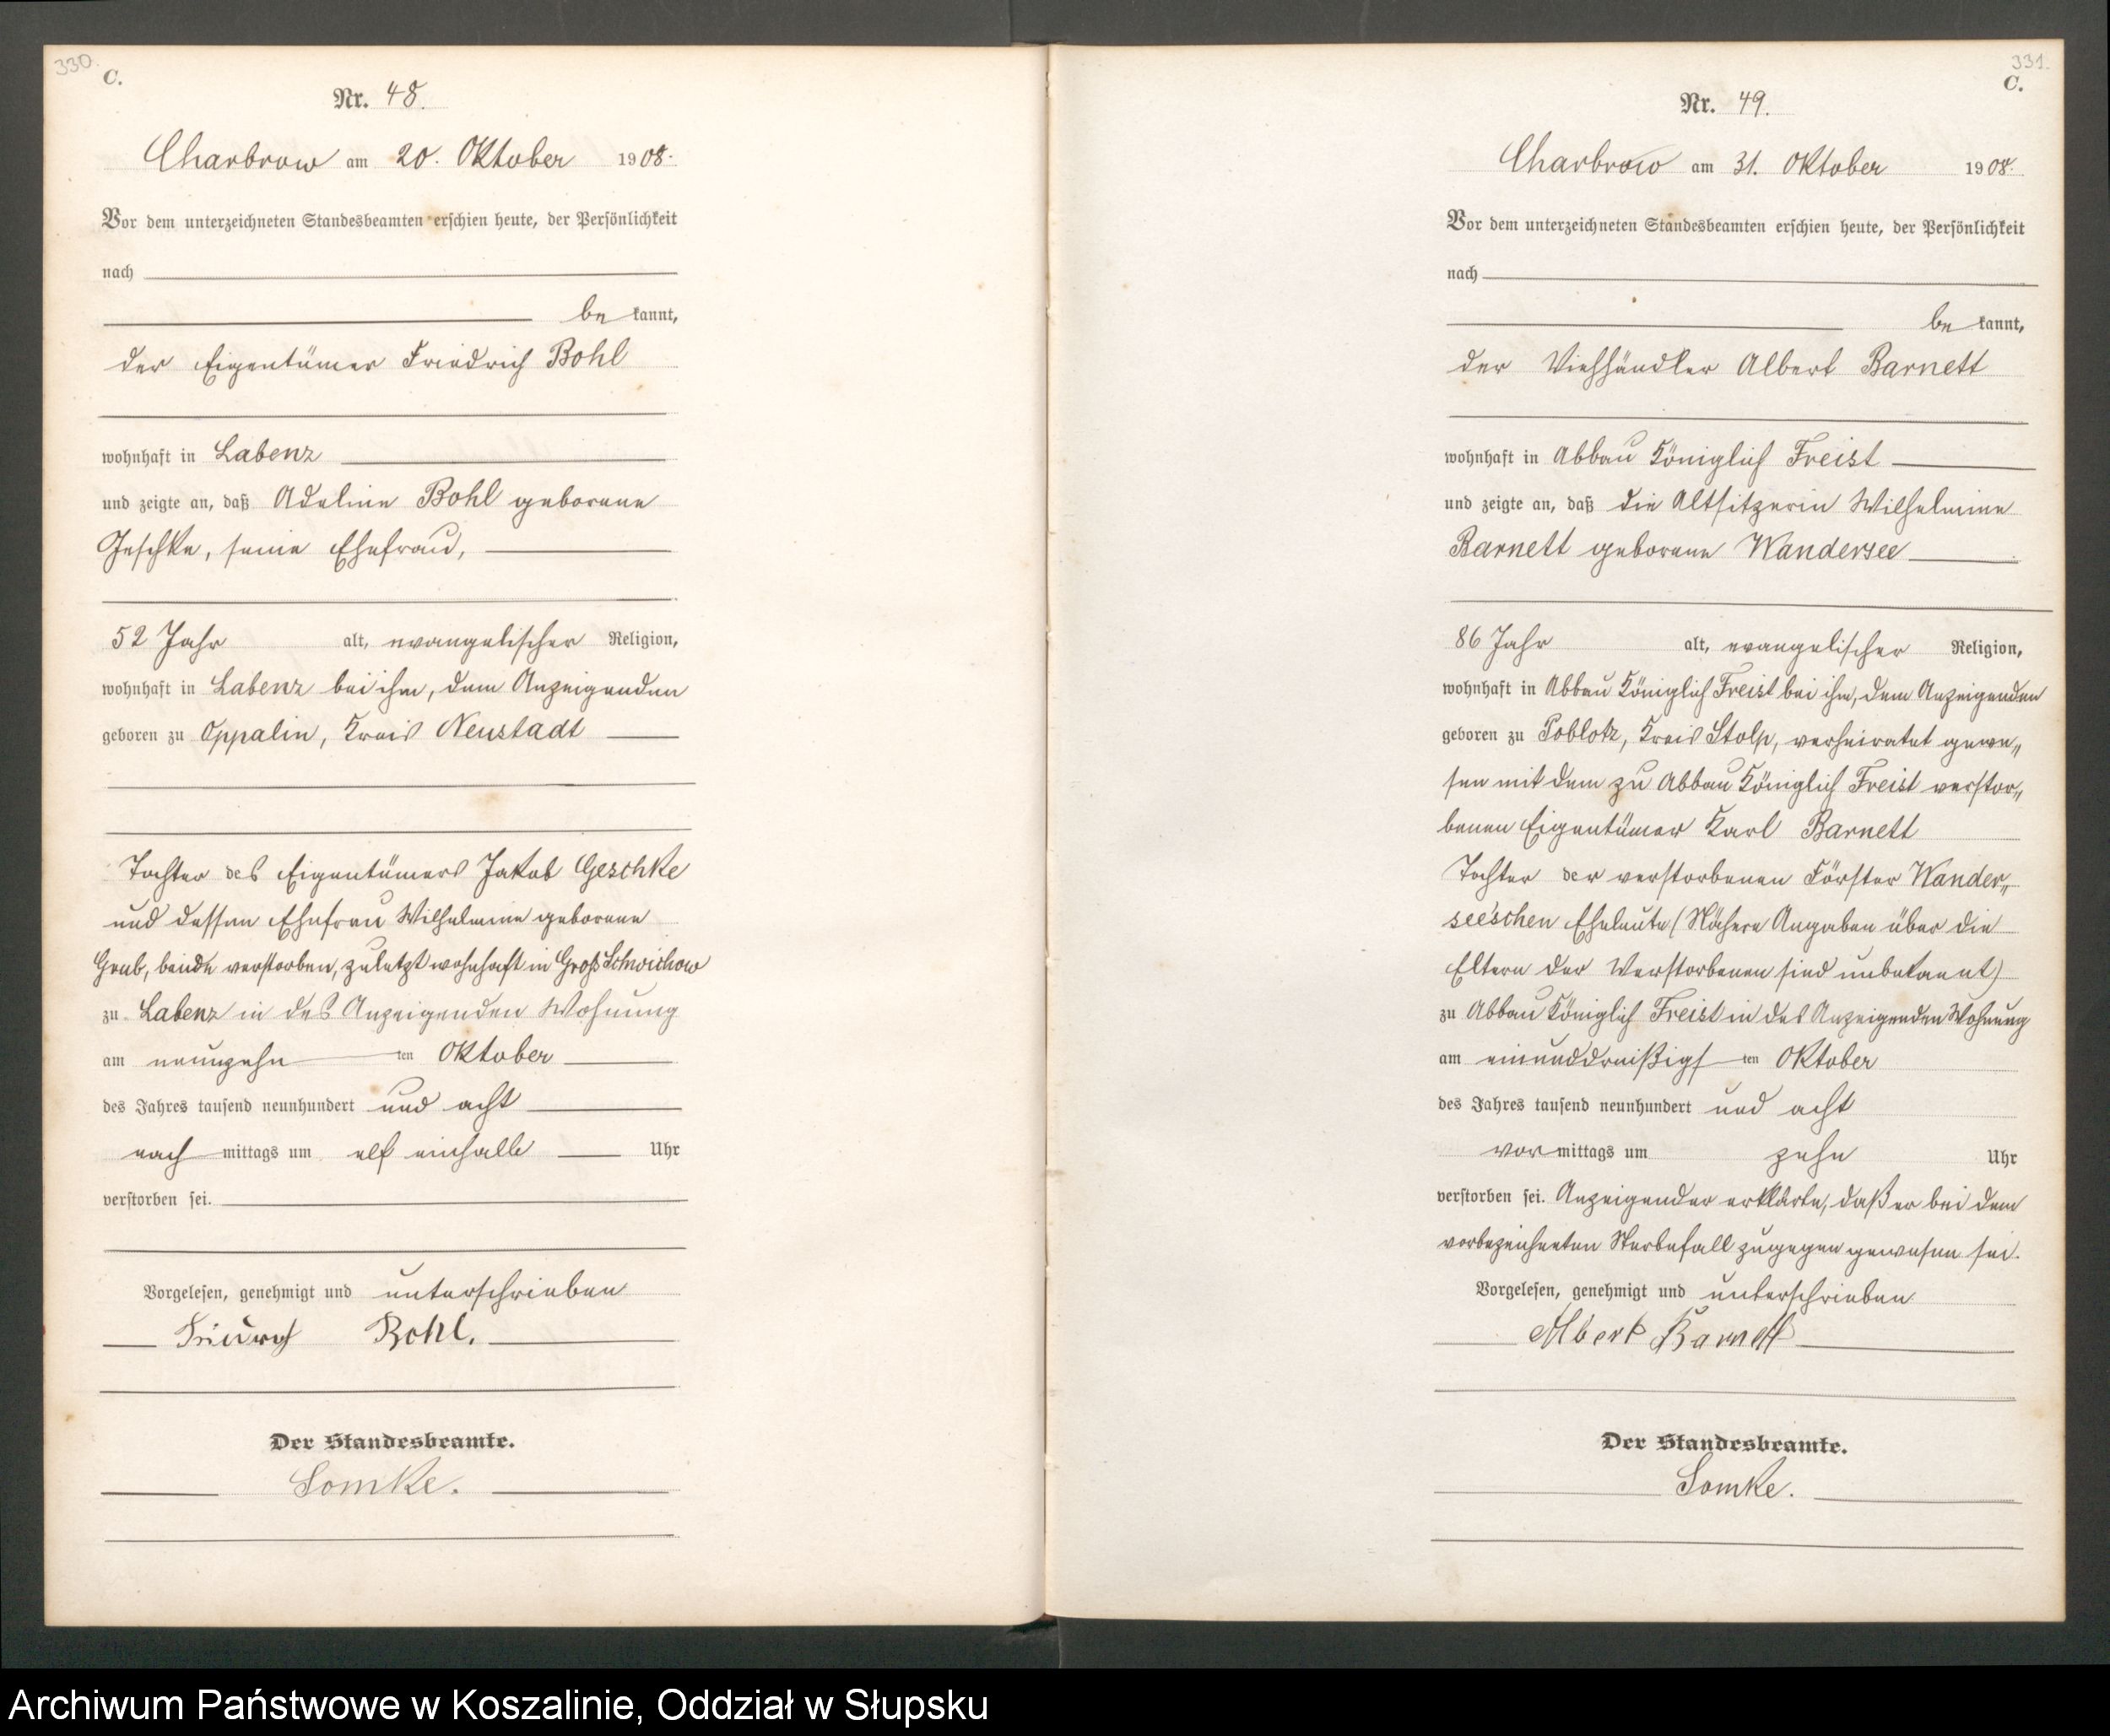 330.
C.
Nr. 48.
Charbrow am 20. Oktober 1908.
Vor dem unterzeichneten Standesbeamten erschien heute, der Persönlichkeit
nach
be kannt,
der Eigentümer Friedrich Bohl
wohnhaft in Labenz
und zeigte an, daß Adeline Bohl geborene
Jeschke, seine Ehefrau,
52 Jahr alt, evangelischer Religion,
wohnhaft in Labenz bei ihm, dem Anzeigenden
geboren zu Oppalin, Kreis Neustadt
Tochter des Eigentümers Jakob Geschke
und dessen Ehefrau Wilhelmine geborene
Grub, beide verstorben, zuletzt wohnhaft in Groß Schwichow
zu Labenz in des Anzeigenden Wohnung
am neunzehn ten Oktober
des Jahres tausend neunhundert und acht
nach mittags um elf einhalb Uhr
verstorben sei.
Vorgelesen, genehmigt und unterschrieben
Friedrich Bohl.
Der Standesbeamte.
Somke.
331.
C.
Nr. 49.
Charbrow am 31. Oktober 1908.
Vor dem unterzeichneten Standesbeamten erschien heute, der Persönlichkeit
nach
be kannt,
der Viehhändler Albert Barnett
wohnhaft in Abbau Königlich Freist
und zeigte an, daß die Altsitzerin Wilhelmine
Barnett geborene Wandersee
86 Jahr alt, evangelischer Religion,
wohnhaft in Abbau Königlich Freist bei ihm, dem Anzeigenden
geboren zu Poblotz, Kreis Stolp, verheiratet gewe„
sen mit dem zu Abbau Königlich Freist verstor„
benen Eigentümer Karl Barnett
Tochter der verstorbenen Förster Wander„
see'schen Eheleute (Nähere Angaben über die
Eltern der Verstorbenen sind unbekannt)
zu Abbau Königlich Freist in des Anzeigenden Wohnung
am einunddreißigs ten Oktober
des Jahres tausend neunhundert und acht
vor mittags um zehn Uhr
verstorben sei. Anzeigender erklärte, daß er bei dem
vorbezeichneten Sterbefall zugegen gewesen sei.
Vorgelesen, genehmigt und unterschrieben
Albert Barnett
Der Standesbeamte.
Somke.
Archiwum Państwowe w Koszalinie, Oddział w Słupsku